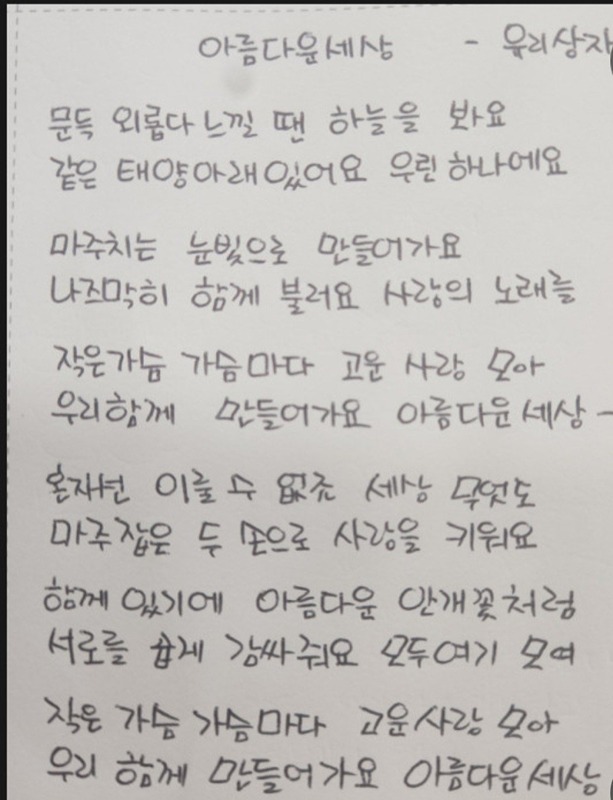 아름다운세상 - 유리상자
문득 외롭다 느낄 땐 하늘을 봐요
같은 태양아래있어요 우린 하나에요
마주치는 눈빛으로 만들어가요
나즈막히 함께 불러요 사랑의 노래를
작은가슴 가슴마다 고운 사랑 모아
우리함께 만들어가요 아름다운 세상-
혼자선 이룰 수 없죠 세상 무엇도
마주잡은 두 손으로 사랑을 키워요
함께 있기에 아름다운 안개꽃처럼
서로를 곱게 감싸줘요 모두여기 모여
작은 가슴 가슴마다 고운사랑 모아
우리 함께 만들어가요 아름다운세상